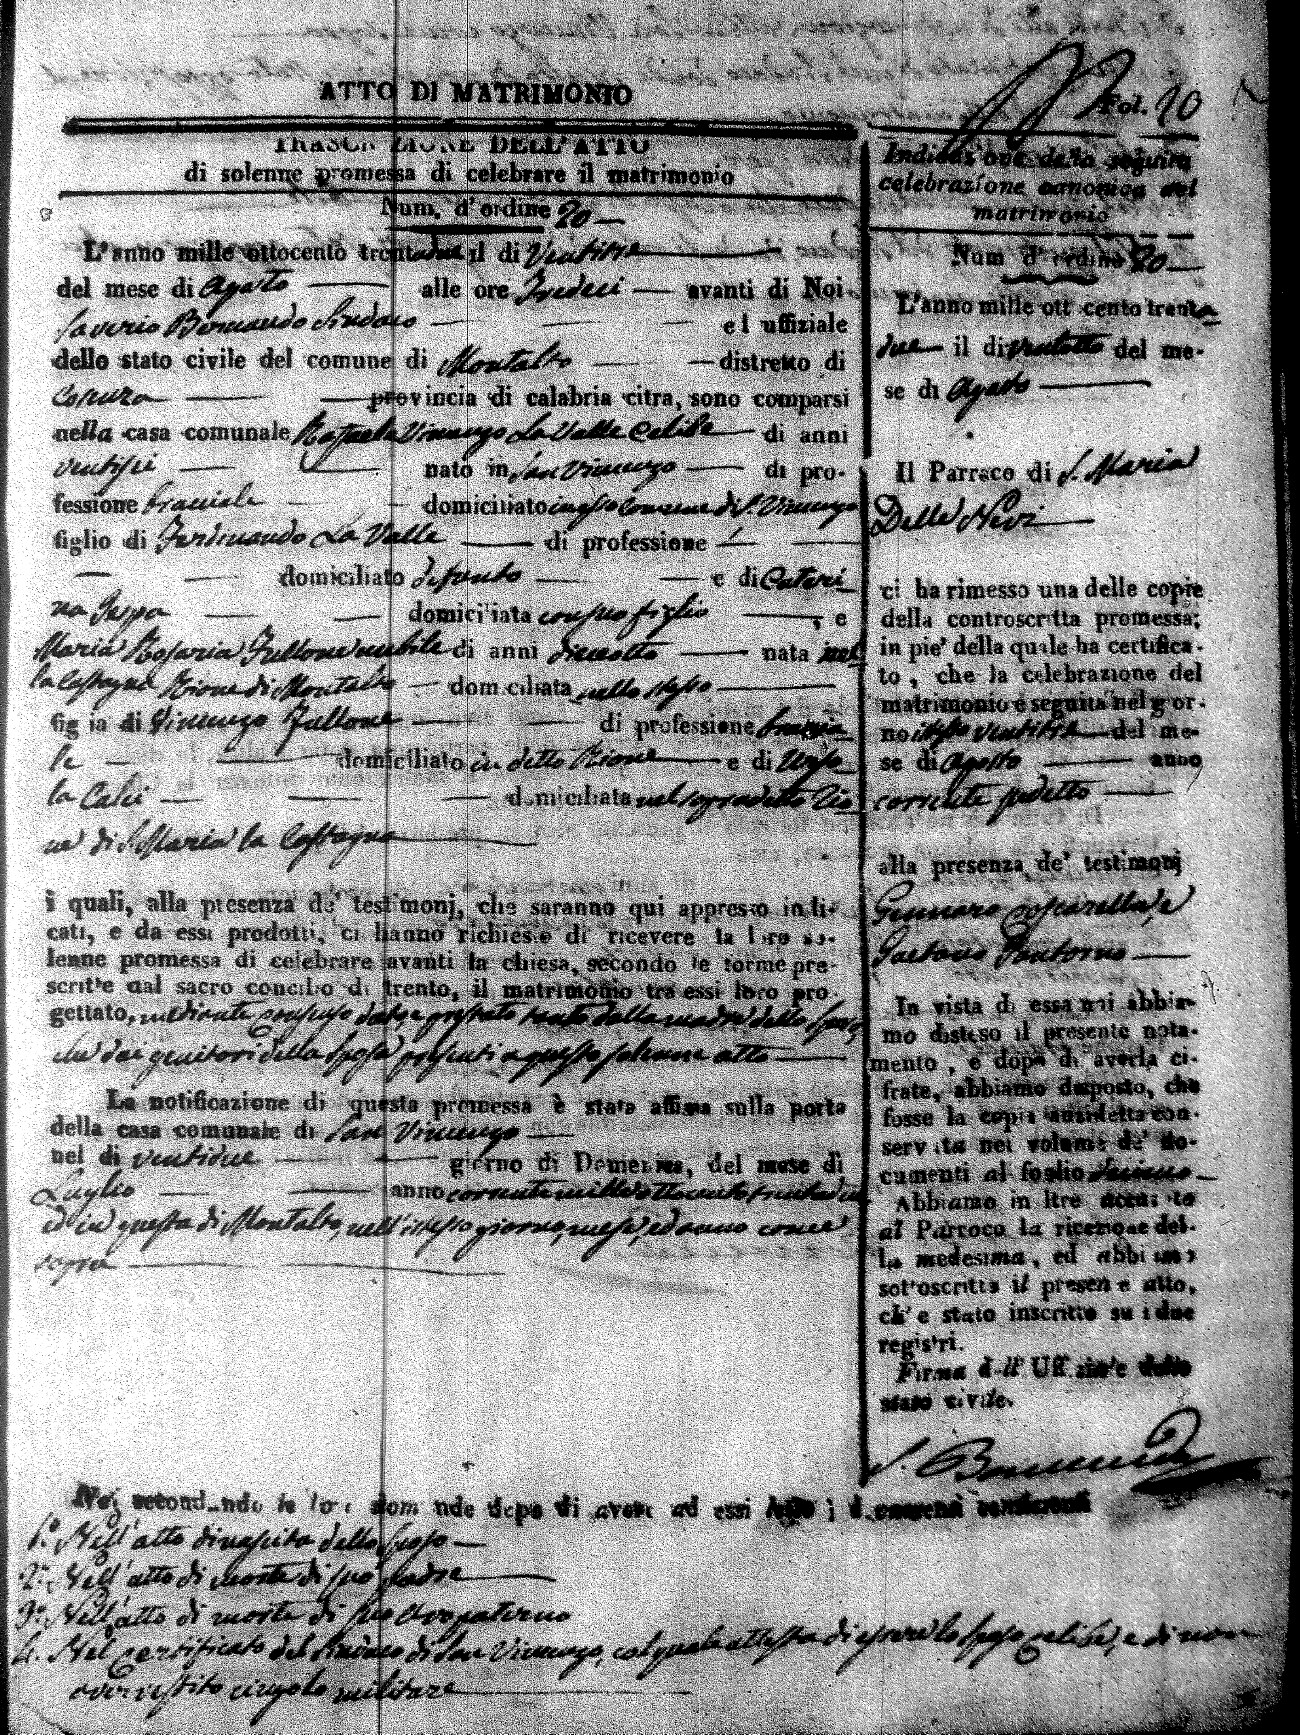 ATTO DI MATRIMONIO
Fol. 20
TRASCRIZIONE DELL'ATTO
di solenne promessa di celebrare il matrimonio
Num. d'ordine 20
L'anno mille ottocento trentadue il di Ventitre
del mese di Agosto alle ore Tredeci avanti di Noi
Saverio Bernaudo Sindaco ed uffiziale
dello stato civile del comune di Montalto distretto di
Cosenza provincia di calabria citra, sono comparsi
nella casa comunale Raffaele Vincenzo La Valle Celibe di anni
ventisei nato in San Vincenzo di pro-
fessione bracciale domiciliato in esso Comune di S. Vincenzo
figlio di Ferdinando La Valle di professione
domiciliato defunto e di Cateri
na domiciliata con suo figlio , e
Maria Rosaria Fullone nubile di anni diecotto nata nel
la Castagna Rione di Montalto domiciliata nello stesso
figlia di Vincenzo Fullone di professione braccia
le domiciliato in detto Rione e di Orso
la Calci domiciliata nel sopradetto Rio
ne di S. Maria la Castagna
i quali, alla presenza de' testimonj, che saranno qui appresso indi-
cati, e da essi prodotti, ci hanno richiesto di ricevere la loro so-
lenne promessa di celebrare avanti la chiesa, secondo le forme pre-
scritte dal sacro concilio di trento, il matrimonio tra essi loro pro-
gettato, mediante consenso dato, e prestato tanto dalla madre dello sposo,
che dai genitori della sposa presenti a questo solenne atto
La notificazione di questa promessa è stata affissa sulla porta
della casa comunale di San Vincenzo
nel di ventidue giorno di Domenica, del mese di
Luglio anno corrente mille ottocento trentadue
ed in questa di Montalto, nell'istesso giorno, mese, ed anno come
sopra
Noi secondando le loro domande dopo di avere ad essi letto i documenti
1.° Nell'atto di nascita dello sposo
2.° Nell'atto di morte di suo padre
3.° Nell'atto di morte di suo Avo paterno
4. Nel certificato del Sindaco di San Vincenzo, col quale attesta di essere lo sposo celibe, e di non
aver vestito cingolo militare
Indicazione della seguita
celebrazione canonica del
matrimonio
Num d'ordine 20
L'anno mille ottocento trenta
due il di ventotto del me-
se di Agosto
Il Parroco di S. Maria
Delle Nevi
ci ha rimesso una delle copie
della controscritta promessa;
in pie' della quale ha certifica-
to, che la celebrazione del
matrimonio é seguita nel gior-
no ventitre del me-
se di Agosto anno
corrente
alla presenza de' testimonj
Gennaro Coscarella, e
Gaetano Santoro
In vista di essa noi abbia-
mo disteso il presente nota-
mento, e dopo di averla ci-
frata, abbiamo disposto, che
fosse la copia anzidetta con-
servata nel volume de' do-
cumenti al foglio
Abbiamo in ltre accusato
al Parroco la ricezione del-
la medesima, ed abbiamo
sottoscritto il presente atto,
ch' e stato inscritto su i due
registri.
Firma dell' Uffiziale dello
stato civile.
S. Bernaudo